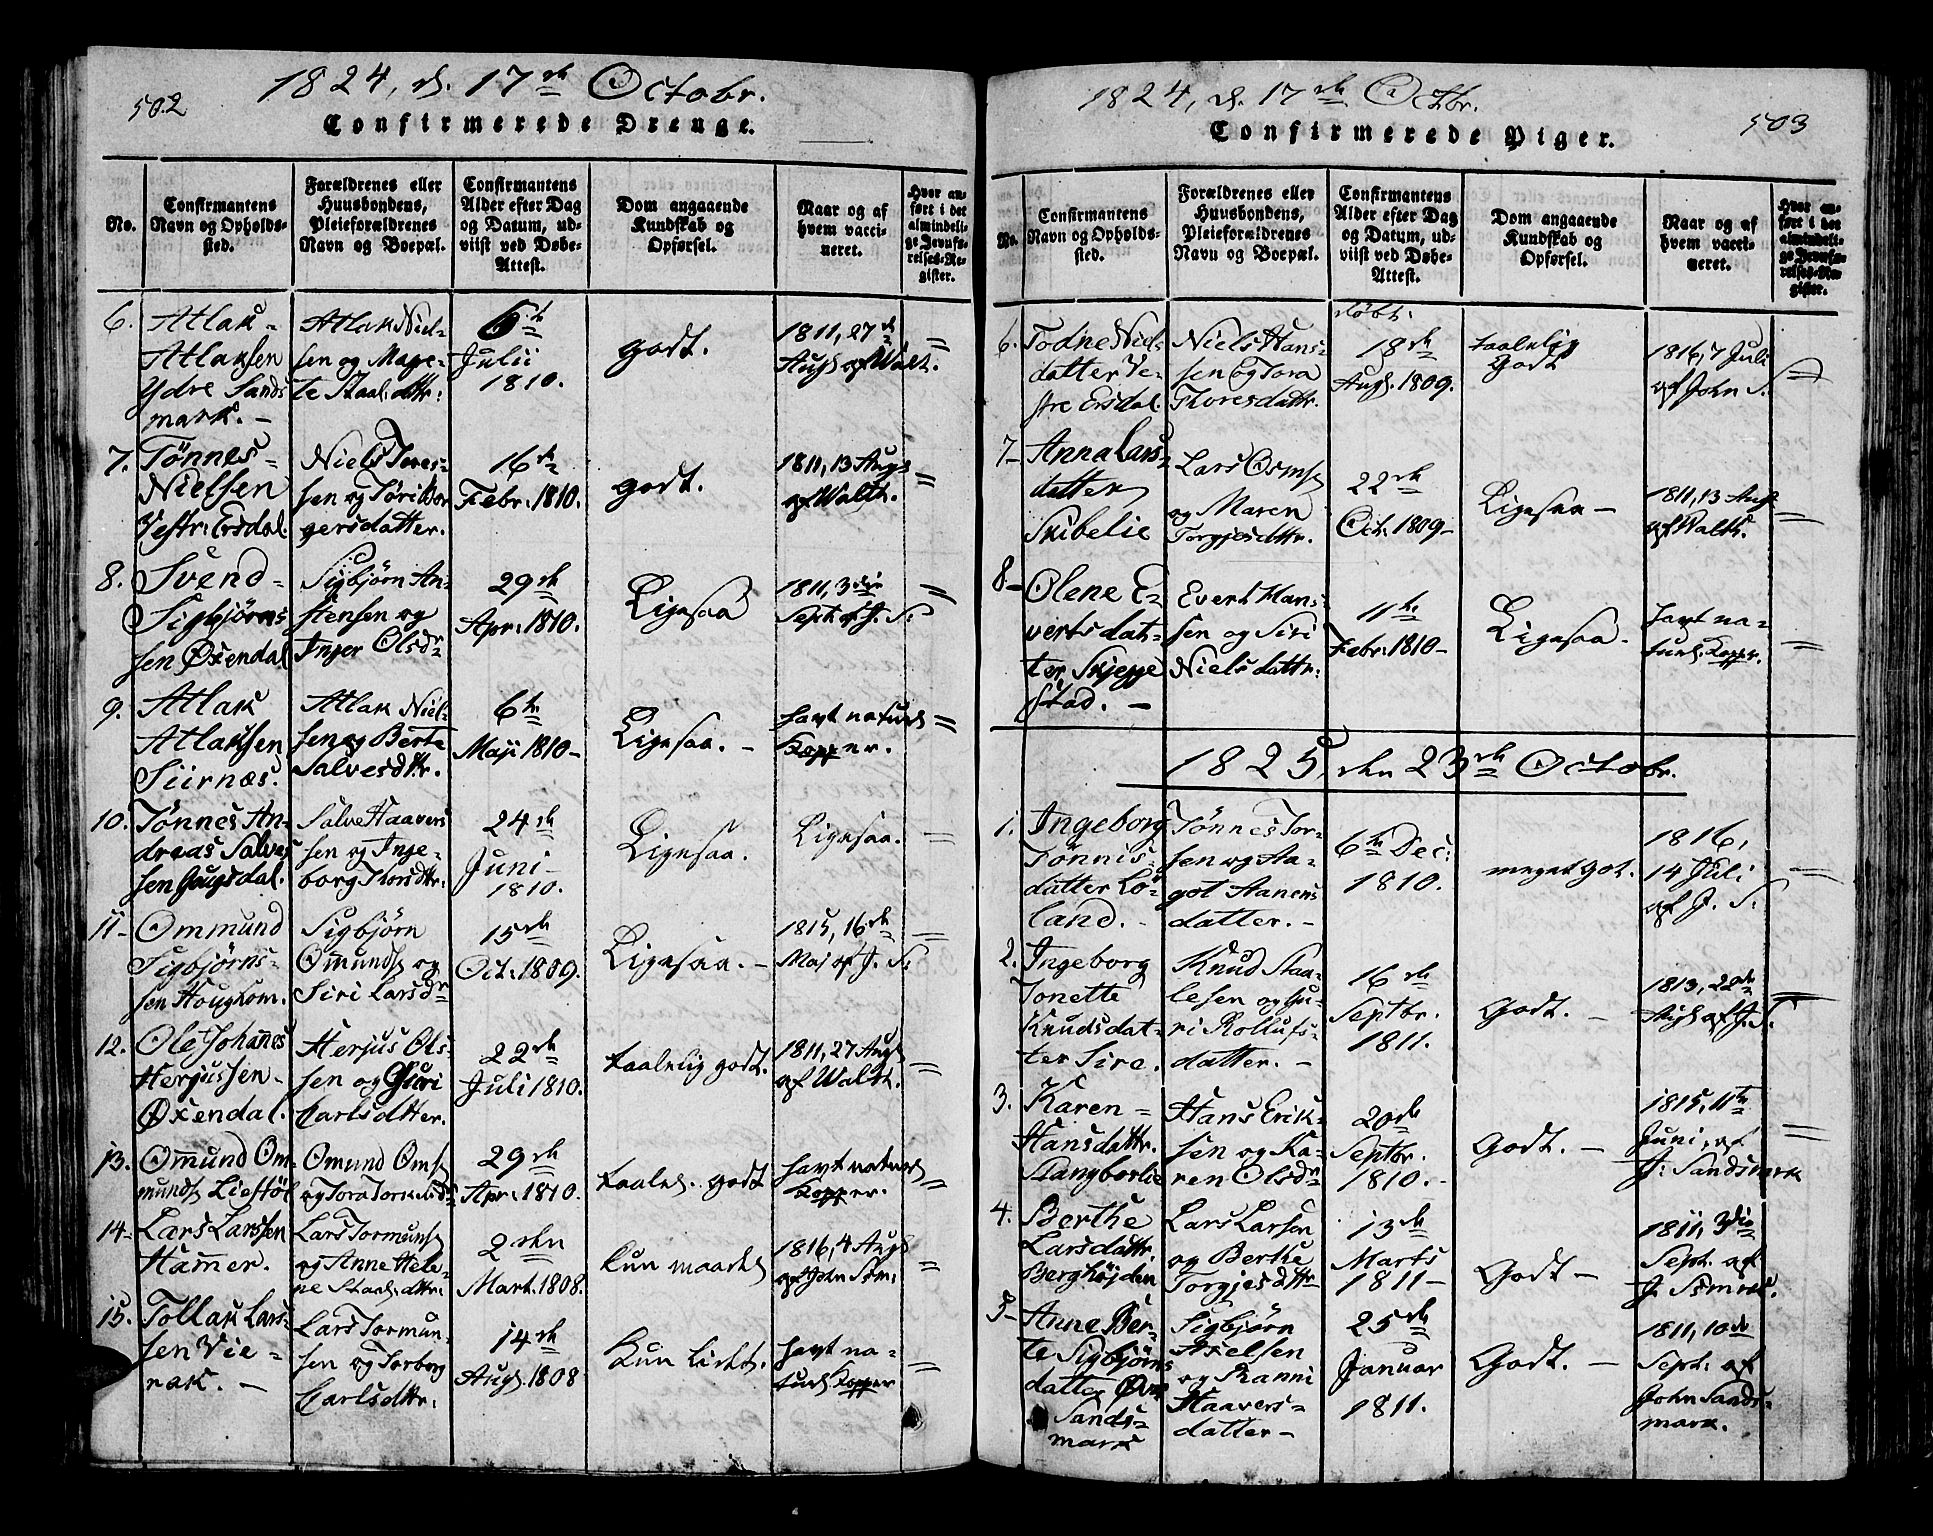 502
1824, d. 17de Octobr.
Confirmerede Drenge.
No.
Confirmantens
Navn og Opholds-
sted.
Forældrenes eller
Huusbondens,
Pleieforældrenes
Navn og Boepæl.
Confirmantens
Alder efter Dag
og Datum, ud-
viist ved Døbe-
Attest.
Dom angaaende
Kundskab og
Opførsel.
Naar og af
hvem vacci-
neret.
Hvor an-
ført i det
almindeli-
ge Jevnfø-
relses-Re-
gister.
6.
Atlak
Atlaksen
Ydre Sands
mark. -
Atlak Niel-
sen og Mage-
te Staal. dttr:
6te
Julii
1810.
godt.
1811, 27de
Augs. af Walt.
7.
Tønnes
Nielsen
Vestr: Ersdal.
Niels Tores-
sen og Tøri Bor
gersdatter.
16de
Febr. 1810.
godt.
1811, 13 Augs
af Waldt.
8.
Svend
Sigbjørns
sen Øxendal
Sigbjørn An-
stensen og
Inger Olsdr
29de
Apr: 1810.
Ligesaa
1811, 3die
Sept. af J. S:
9.
Atlak
Atlaksen
Siirnæs.
Atlak Niel-
sen og Berte
Salvesdtr.
6te
Maji 1810-
Ligesaa. -
havt naturl
Kopper.
10.
Tønnes An-
dreas Salves
sen Haugsdal.
Salve Haavers
sen og Inge-
borg Thorsdtr:
24de
Juni-
1810.
Ligesaa.
Ligesaa.
11-
Ommund
Sigbjørns-
sen Hougkom.
Sigbjørn
Omunds og
Siri Larsdr
15de
Oct. 1809.
Ligesaa. -
1815, 16de
Maj af J. S:
12.
Ole Johanes
Herjussen
Øxendal.
Herjus Ols-
sen og Guri
Carlsdtter.
22de
Juli 1810.
taalelig godt.
1811, 27 Augs
af Waldt.
13.
Omund Om-
munds Liestøl
Omund Oms
og Tora Torkelsd:
29de
Apr: 1810.
taalel. godt
havt naturl
Kopper.
14-
Lars Larssen
Hamer.
Lars Tormuns
og Anne Hele-
ne Staal. dttr:
2den
Mart. 1808.
kun maadel
1816, 4 Augs
af John Sm:
15.
Tollak Lars-
sen Vie-
rak. -
Lars Tormun-
sen og Torborg
Carlsdtr:
14de
Augs. 1808
Kun lidet.
havt na-
turl. Kopper
1824, d. 17de Octbr.
503
Confirmerede Piger.
No.
Confirmantens
Navn og Opholds-
sted.
Forældrenes eller
Huusbondens,
Pleieforældrenes
Navn og Boepæl.
Confirmantens
Alder efter Dag
og Datum, ud-
viist ved Døbe-
Attest.
Dom angaaende
Kundskab og
Opførsel.
Naar og af
hvem vacci-
neret.
Hvor an-
ført i det
almindeli-
ge Jevnfø-
relses-Re-
gister.
6.
Todne Niels
datter Ve-
stre Ersdal.
Niels Hans-
sen og Tora
Thoresdattr.
døbt.
18de
Augs. 1809.
taalelig
Godt
1816, 7 Juli
af John S.
7-
Anna Lars-
datter
Skibelie
Lars Osms
og Maren
Torgjesdttr.
22de
Oct. 1809-
Ligesaa -
1811, 13 Augs
af Waldt.
8-
Olene E-
vertsdat-
ter, Skjegge
stad. -
Evert Hans-
sen og Siri
Nielsdattr:
11te
Febr: 1810-
Ligesaa.
havt na-
turl. Kopper.
1825, den 23de Octobr.
1.
Ingeborg
Tønnis-
datter Lø-
land. -
Tønnes Tor-
sen og Aa-
got Stanens
datter. -
6te Dec:
1810.
meget got.
1816,
14 Juli
af J. S.
2.
Ingeborg
Jonette
Knudsdat-
ter Sire.
Knud Staa-
lesen og Gu-
ri Rollufs-
datter. -
16de
Septbr.
1811.
Godt. -
1813, 22de
Augs. af J. S.
3.
Karen
Hansdattr.
Stangborlie
Hans Erik-
sen og Ka-
ren Olsdr
20de
Septbr.
1810.-
Godt. -
1815, 11te
Juni, af
J. Sandsmark
4.
Berthe
Larsdattr.
Berghøjden
Lars Larsen
og Berthe
Torgjesdttr
13de
Marts
1811-
Godt -
1811, 3die
Sept. af
J. Ssmrk.
5-
Anne Ber-
te Sigbjørns
datter Øvre
Sands-
mark
Sigbjørn
Axelsen
og Ranni
Haavers-
datter -
25de
Januar
1811.
Godt. -
1811, 10de
Sept. af
John Sands-
mark.